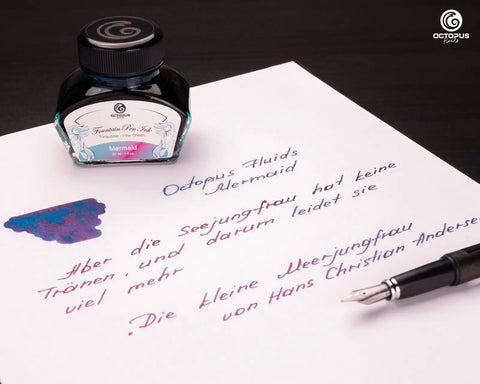 OCTOPUS
fluids
OCTOPUS
Fountain Pen Ink
Turquoise - Pink Sheen
Mermaid
Octopus Fluids
Mermaid
Aber die Seejungfrau hat keine
Tränen, und darum leidet sie
viel mehr
Die kleine Meerjungfrau
von Hans Christian Andersen